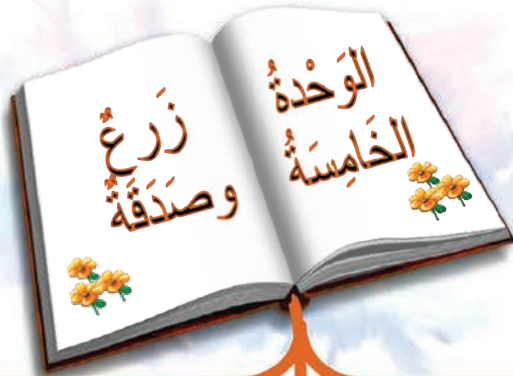 الوَحْدةُ
الخَامِسَةُ
زَرعٌ
وصَدَقَةٌ